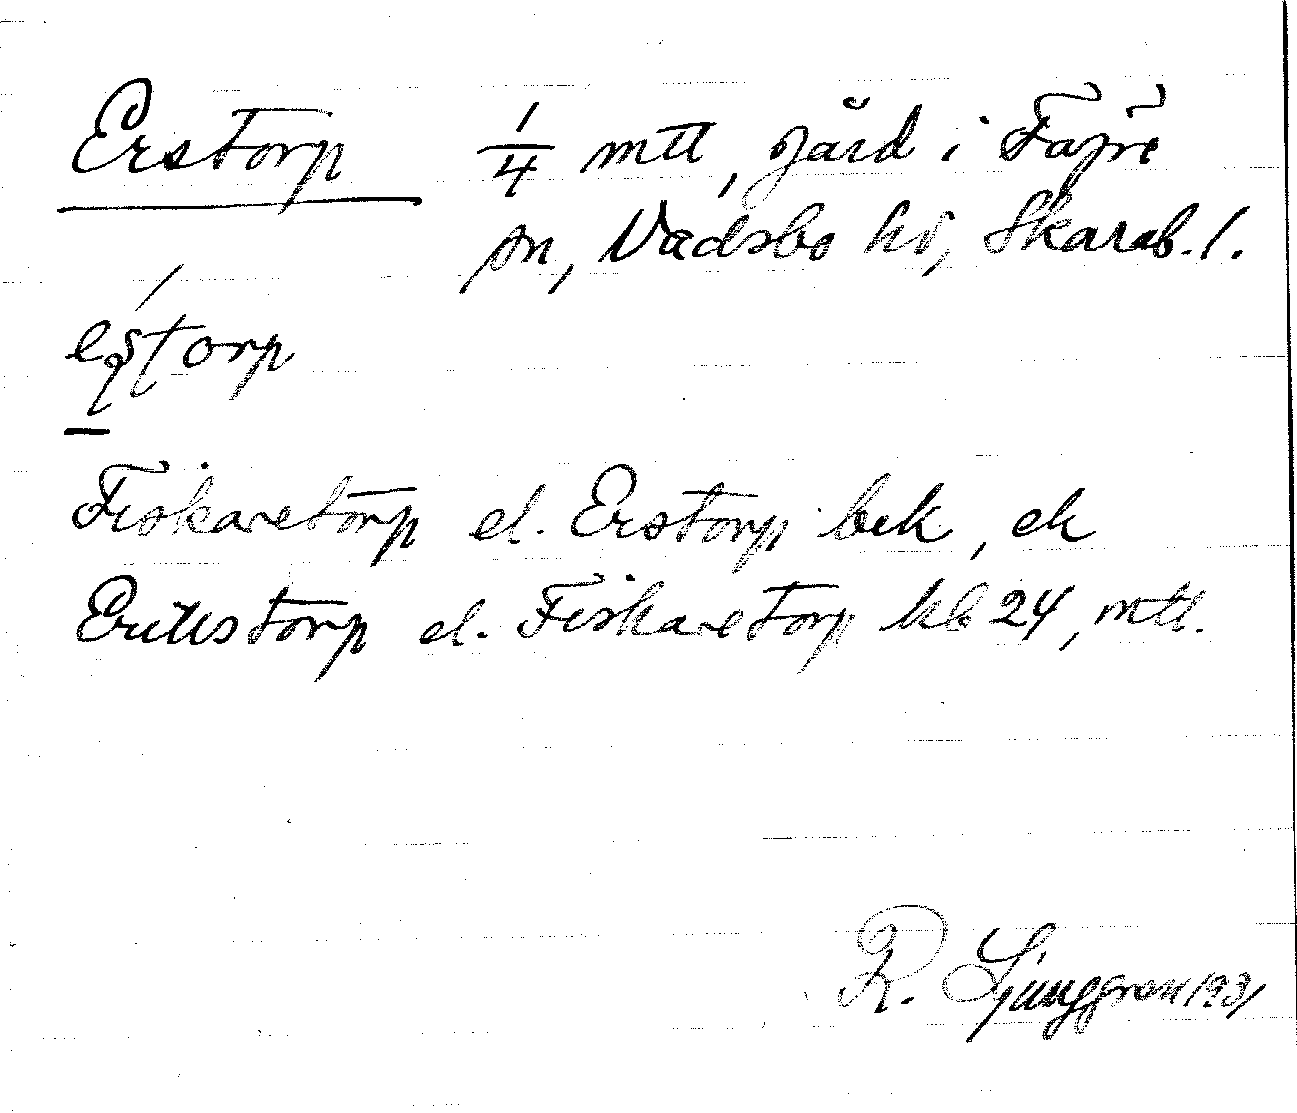 Erstorp 1/4 mtl, gård i Fägre
sn, Vadsbo hd, Skarab. l.
eʂtorp
Fiskaretorp el. Erstorp bek, ek
Erikstorp el. Fiskaretorp kb 24, mtl.
R. Ljunggren 1931